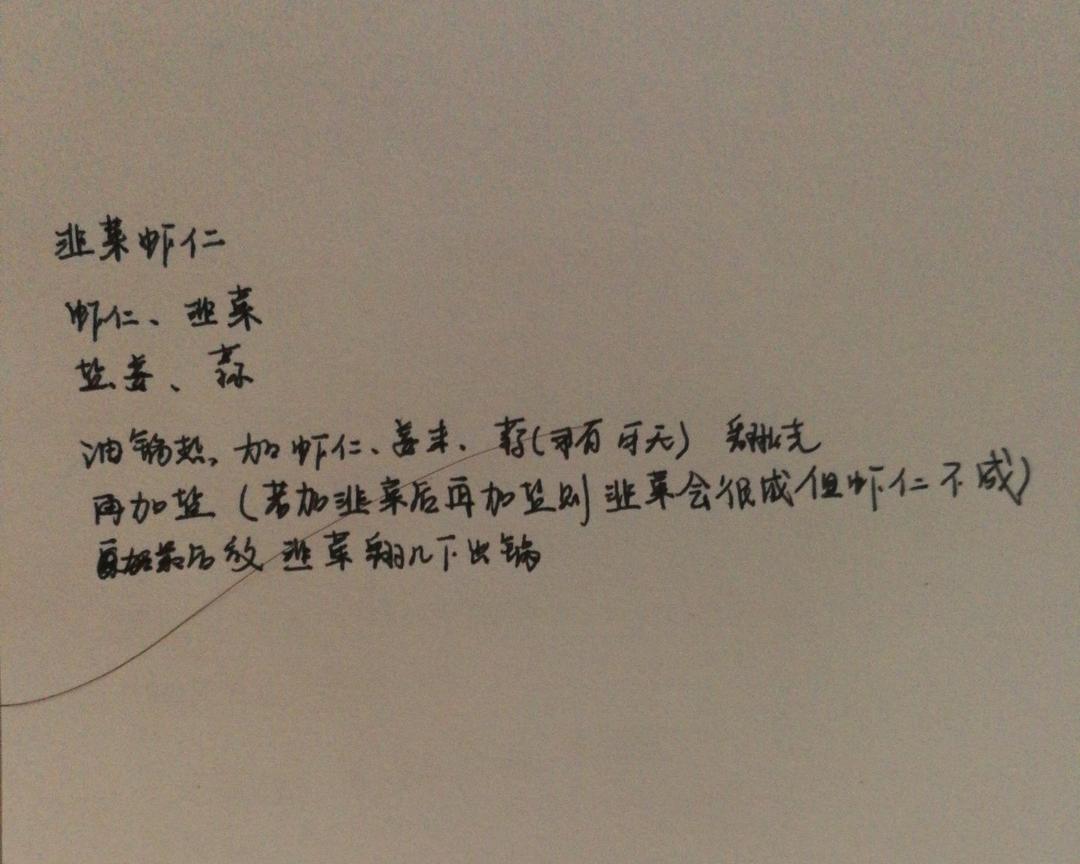 韭菜虾仁
虾仁、韭菜
盐姜、蒜
油锅热,加虾仁、姜末、蒜(可有可无) 翻炒
再加盐(若加韭菜后再加盐则韭菜会很咸但虾仁不咸)
最后放韭菜翻几下出锅